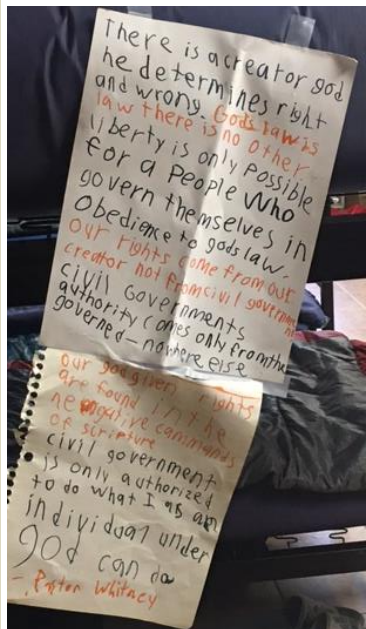 There is a creator god
he determines right
and wrong. Gods law is
law there is no other
liberty is only possible
for a People Who
govern themselves in
Obedience to gods law.
our rights come from our
creator not from civil government
civil Governments
authority comes only from the
governed - nowhere else
our god given rights
are found in the
negative commands
of scripture
civil government
is only authorized
to do what I as an
individual under
god can do
- Pastor Whitney